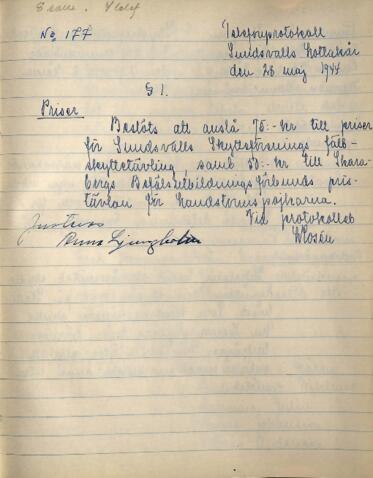 No 177
Telefonprotokoll
Sundsvalls Lottakår
den 26 maj 1944
§ 1.
Priser
Beslöts att anslå 75:- kr till priser
för Sundsvalls Skytteförenings fält-
skyttetävling, samt 50:- kr till Skara-
bergs Befälsutbildnings förbunds pris-
tävlan för Landstormspojkarna.
Vid protokollet
Justeras
Anna Ljungholm